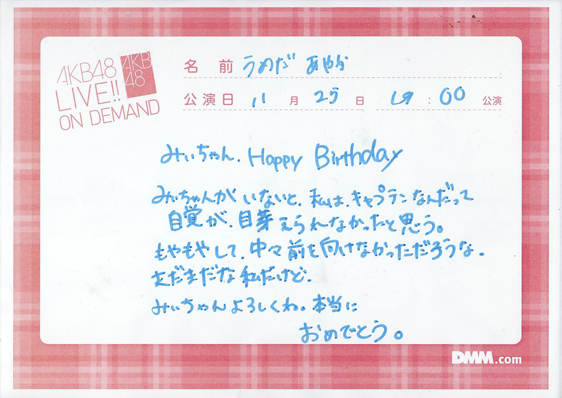 AKB48
LIVE!!
ON DEMAND
AKB
48
名前 うめだ あやか
公演日 11月25日 19:00 公演
みぃちゃん. Happy Birthday
みぃちゃんがいないと、私は、キャプテンなんだって
自覚が、目芽えられなかったと思う。
もやもやして、中々前を向けなかっただろうな。
まだまだな私だけど、
みぃちゃんよろしくね。本当に
おめでとう。
DMM.com